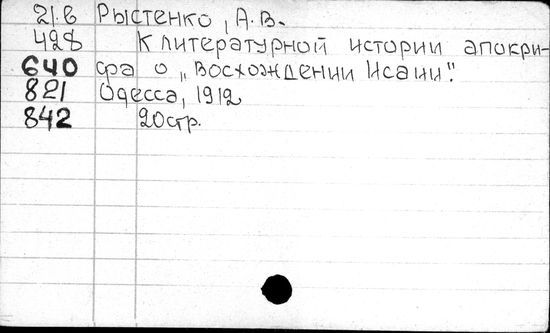 21.6 Рыстенко, А.В.
428 К литературной истории апокри-
640 фа о „Восхождении Исаии".
821 Одесса, 1912
842 20стр.